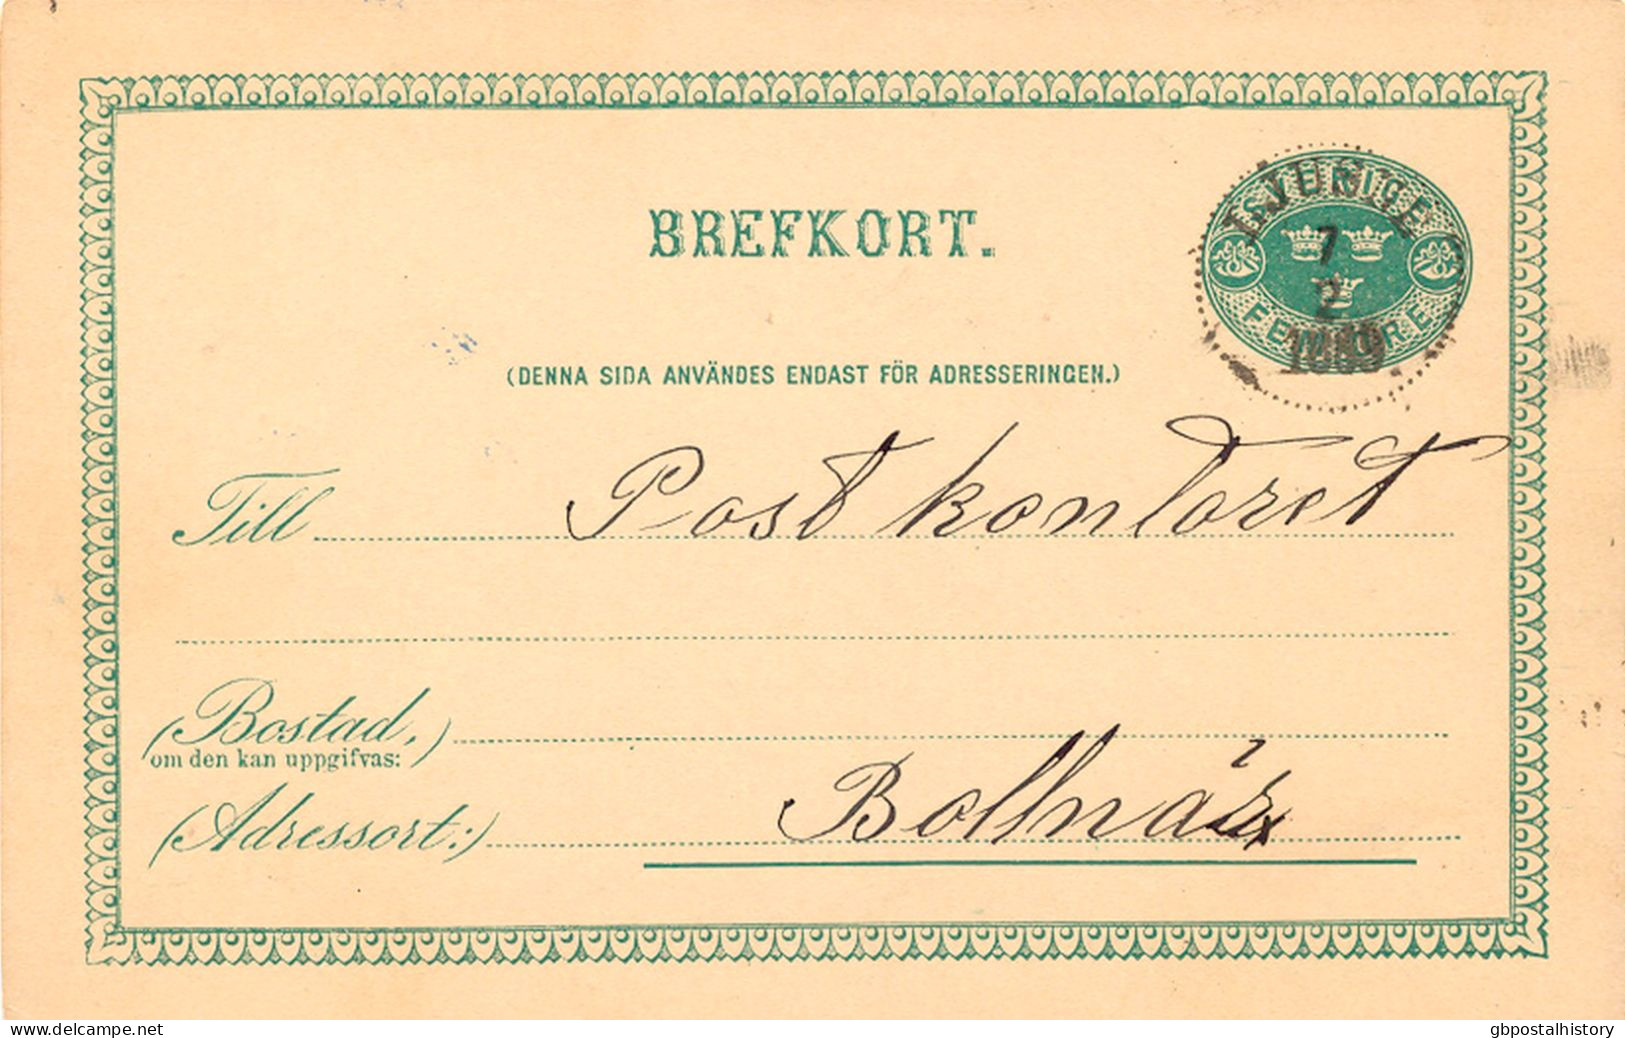 SVERIGE
FEM ÖRE
7
2
BREFKORT.
(DENNA SIDA ANVÄNDES ENDAST FÖR ADRESSERINGEN.)
Till Postkontoret
(Bostad,)
om den kan uppgifvas:
(Adressort:) Bollnäs
www.delcampe.net
gbpostalhistory